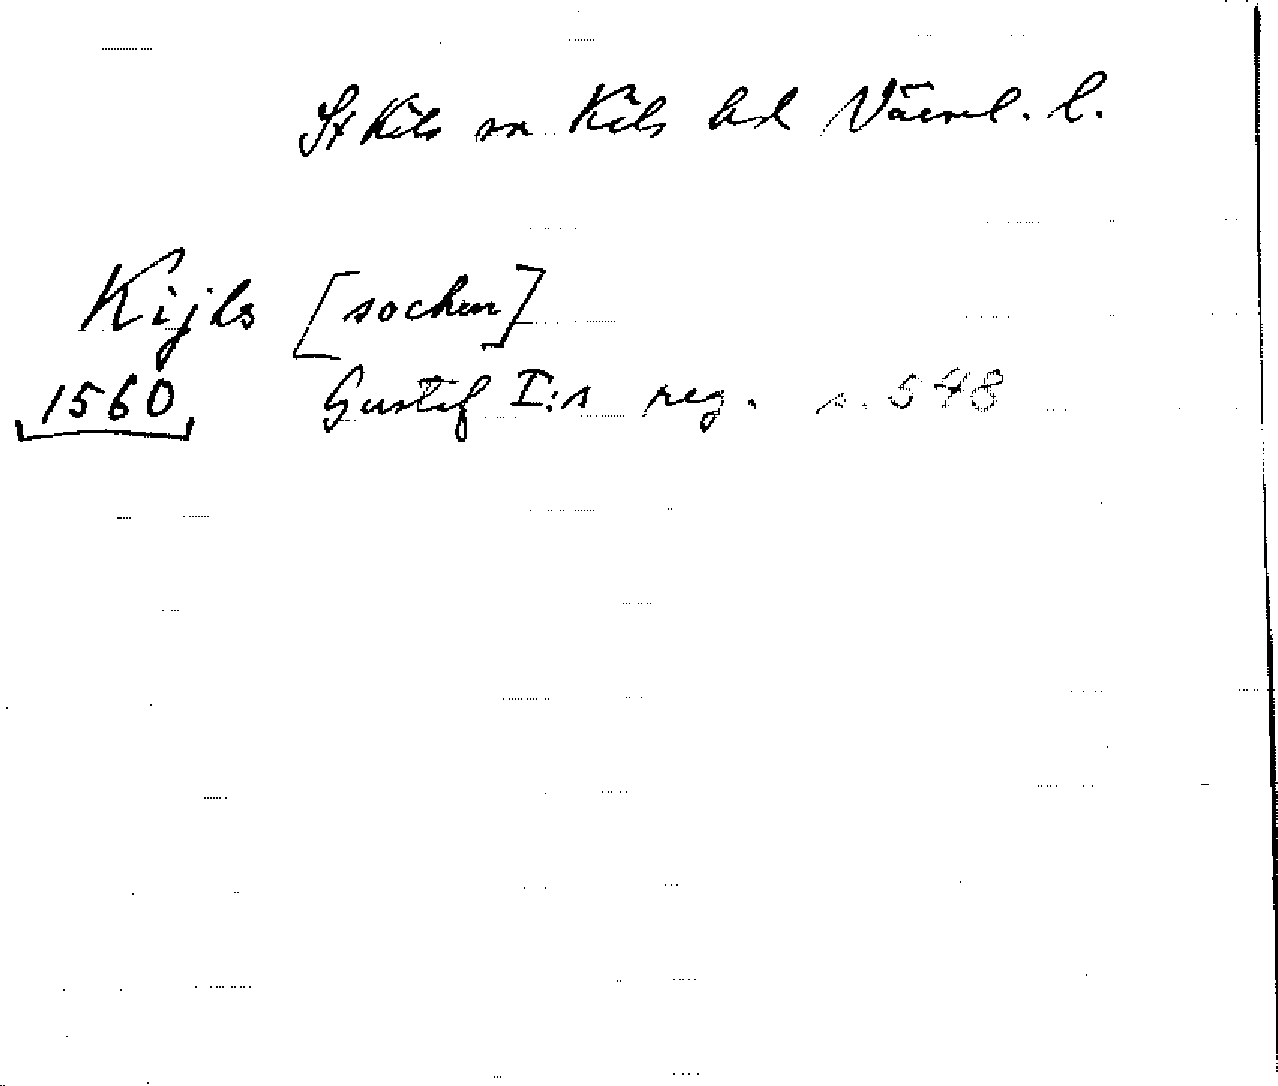 St Kils sn Kils hd Värml. l.
Kijls [sochen]
1560 Gustaf I:s reg. s. 548